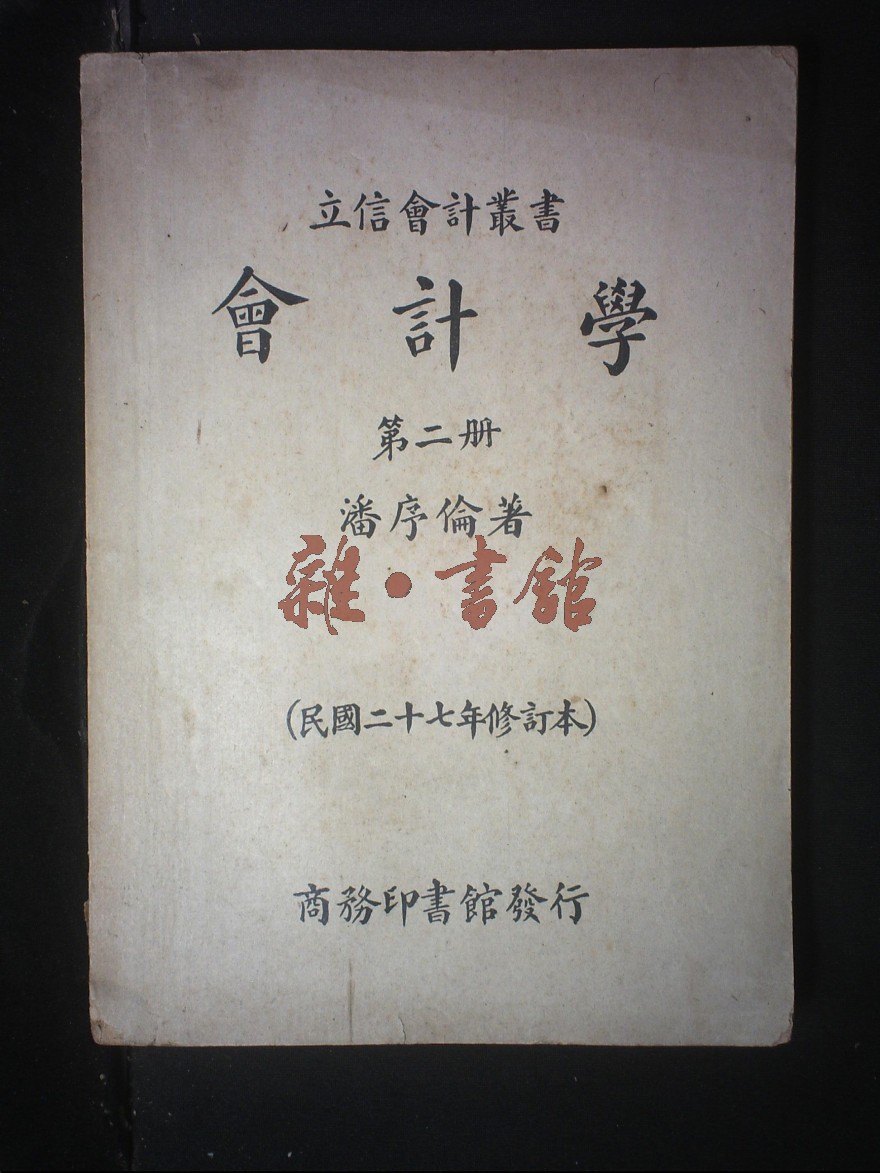 立信會計叢書
會計學
第二册
潘序倫著
雜·書館
(民國二十七年修訂本)
商務印書館發行